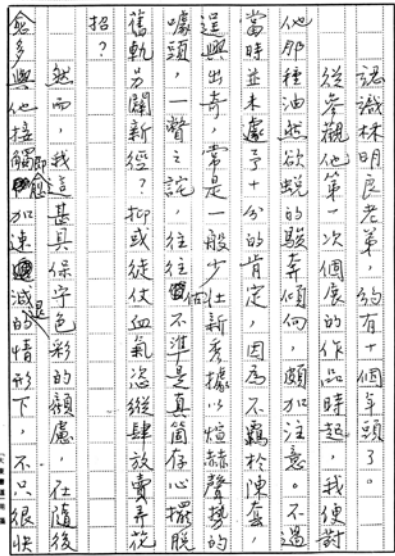 認識林明良老弟，約有十個年頭了。
從參觀他第一次個展的作品時起，我便對
他那種油然欲蛻的駿奔傾向，頗加注意。不過
當時並未處予十分的肯定，因為不羈於陳套，
逞興出奇，常是一般少仕新秀據以煊赫聲勢的
噱頭，一瞥之詫，往往估不準是真箇存心擺脫
舊軌另闢新徑？抑或徒仗血氣恣縱肆放賣弄花
招？
然而，我這甚具保守色彩的顧慮，在隨後
愈多與他接觸即愈加速減退的情形下，不只很快